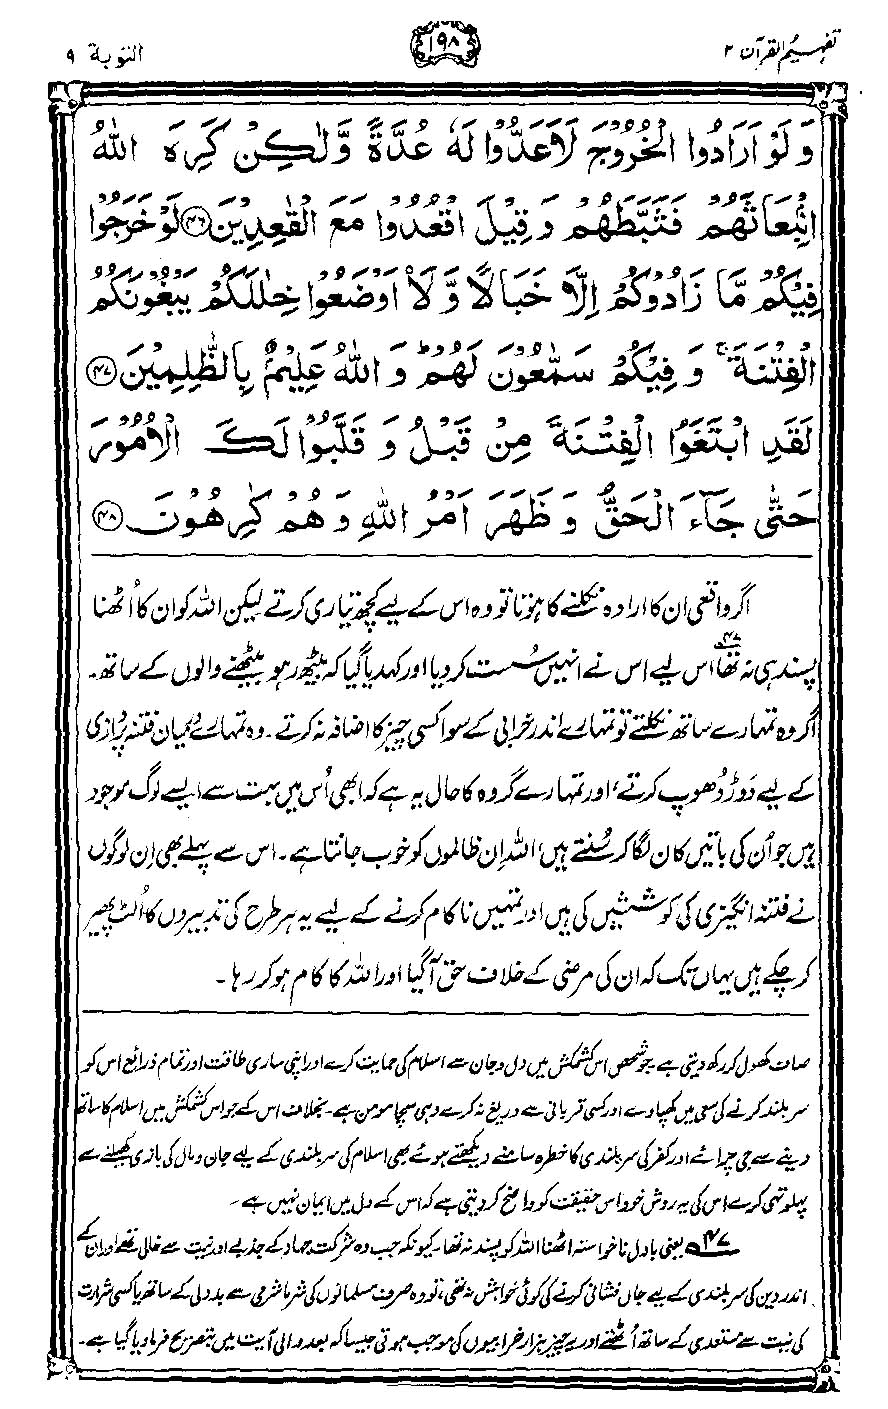 تفہیم القرآن ۲
۱۹۸
التوبة ۹
وَ لَوْ اَرَادُوا الْخُرُوْجَ لَاَعَدُّوْا لَهٗ عُدَّةً وَّلٰكِنْ كَرِهَ اللّٰهُ
انْۢبِعَاثَهُمْ فَثَبَّطَهُمْ وَ قِيْلَ اقْعُدُوْا مَعَ الْقٰعِدِيْنَ ﴿۴۶﴾ لَوْ خَرَجُوْا
فِيْكُمْ مَّا زَادُوْكُمْ اِلَّا خَبَالًا وَّ لَا۟اَوْضَعُوْا خِلٰلَكُمْ يَبْغُوْنَكُمُ
الْفِتْنَةَ ۚ وَ فِيْكُمْ سَمّٰعُوْنَ لَهُمْ ؕ وَ اللّٰهُ عَلِيْمٌۢ بِالظّٰلِمِيْنَ ﴿۴۷﴾
لَقَدِ ابْتَغَوُا الْفِتْنَةَ مِنْ قَبْلُ وَ قَلَّبُوْا لَكَ الْاُمُوْرَ
حَتّٰى جَآءَ الْحَقُّ وَ ظَهَرَ اَمْرُ اللّٰهِ وَ هُمْ كٰرِهُوْنَ ﴿۴۸﴾
اگر واقعی ان کا ارادہ نکلنے کا ہوتا تو وہ اس کے لیے کچھ تیاری کرتے لیکن اللہ کو ان کا اُٹھنا
پسند ہی نہ تھا۴۷ اس لیے اس نے انہیں سُست کر دیا اور کہہ دیا گیا کہ بیٹھ رہو بیٹھنے والوں کے ساتھ۔
اگر وہ تمہارے ساتھ نکلتے تو تمہارے اندر خرابی کے سوا کسی چیز کا اضافہ نہ کرتے۔ وہ تمہارے درمیان فتنہ پردازی
کے لیے دَوڑ دُھوپ کرتے، اور تمہارے گروہ کا حال یہ ہے کہ ابھی اُس میں بہت سے ایسے لوگ موجود
ہیں جو اُن کی باتیں کان لگا کر سُنتے ہیں، اللہ اِن ظالموں کو خوب جانتا ہے۔ اس سے پہلے بھی اِن لوگوں
نے فتنہ انگیزی کی کوششیں کی ہیں اور تمہیں ناکام کرنے کے لیے یہ ہر طرح کی تدبیروں کا اُلٹ پھیر
کر چکے ہیں یہاں تک کہ ان کی مرضی کے خلاف حق آ گیا اور اللہ کا کام ہو کر رہا۔
صاف کھول کر رکھ دیتی ہے۔ جو شخص اس کشمکش میں دل و جان سے اسلام کی حمایت کرے اور اپنی ساری طاقت اور تمام ذرائع اس کو
سربلند کرنے کی سعی میں کھپا دے اور کسی قربانی سے دریغ نہ کرے وہی سچا مومن ہے۔ بخلاف اس کے جو اس کشمکش میں اسلام کا ساتھ
دینے سے جی چرائے اور کفر کی سربلندی کا خطرہ سامنے دیکھتے ہوئے بھی اسلام کی سربلندی کے لیے جان و مال کی بازی کھیلنے سے
پہلو تہی کرے اس کی یہ روش خود اس حقیقت کو واضح کر دیتی ہے کہ اس کے دل میں ایمان نہیں ہے۔
۴۷ یعنی بادل ناخواستہ اٹھنا اللہ کو پسند نہ تھا۔ کیونکہ جب وہ شرکت جہاد کے جذبے اور نیت سے خالی تھے اور ان کے
اندر دین کی سربلندی کے لیے جاں فشانی کرنے کی کوئی خواہش نہ تھی، تو وہ صرف مسلمانوں کی شرما شرمی سے بددلی کے ساتھ یا کسی شرارت
کی نیت سے مستعدی کے ساتھ اُٹھتے اور یہ چیز ہزار خرابیوں کی موجب ہوتی جیسا کہ بعد والی آیت میں بتصریح فرما دیا گیا ہے۔